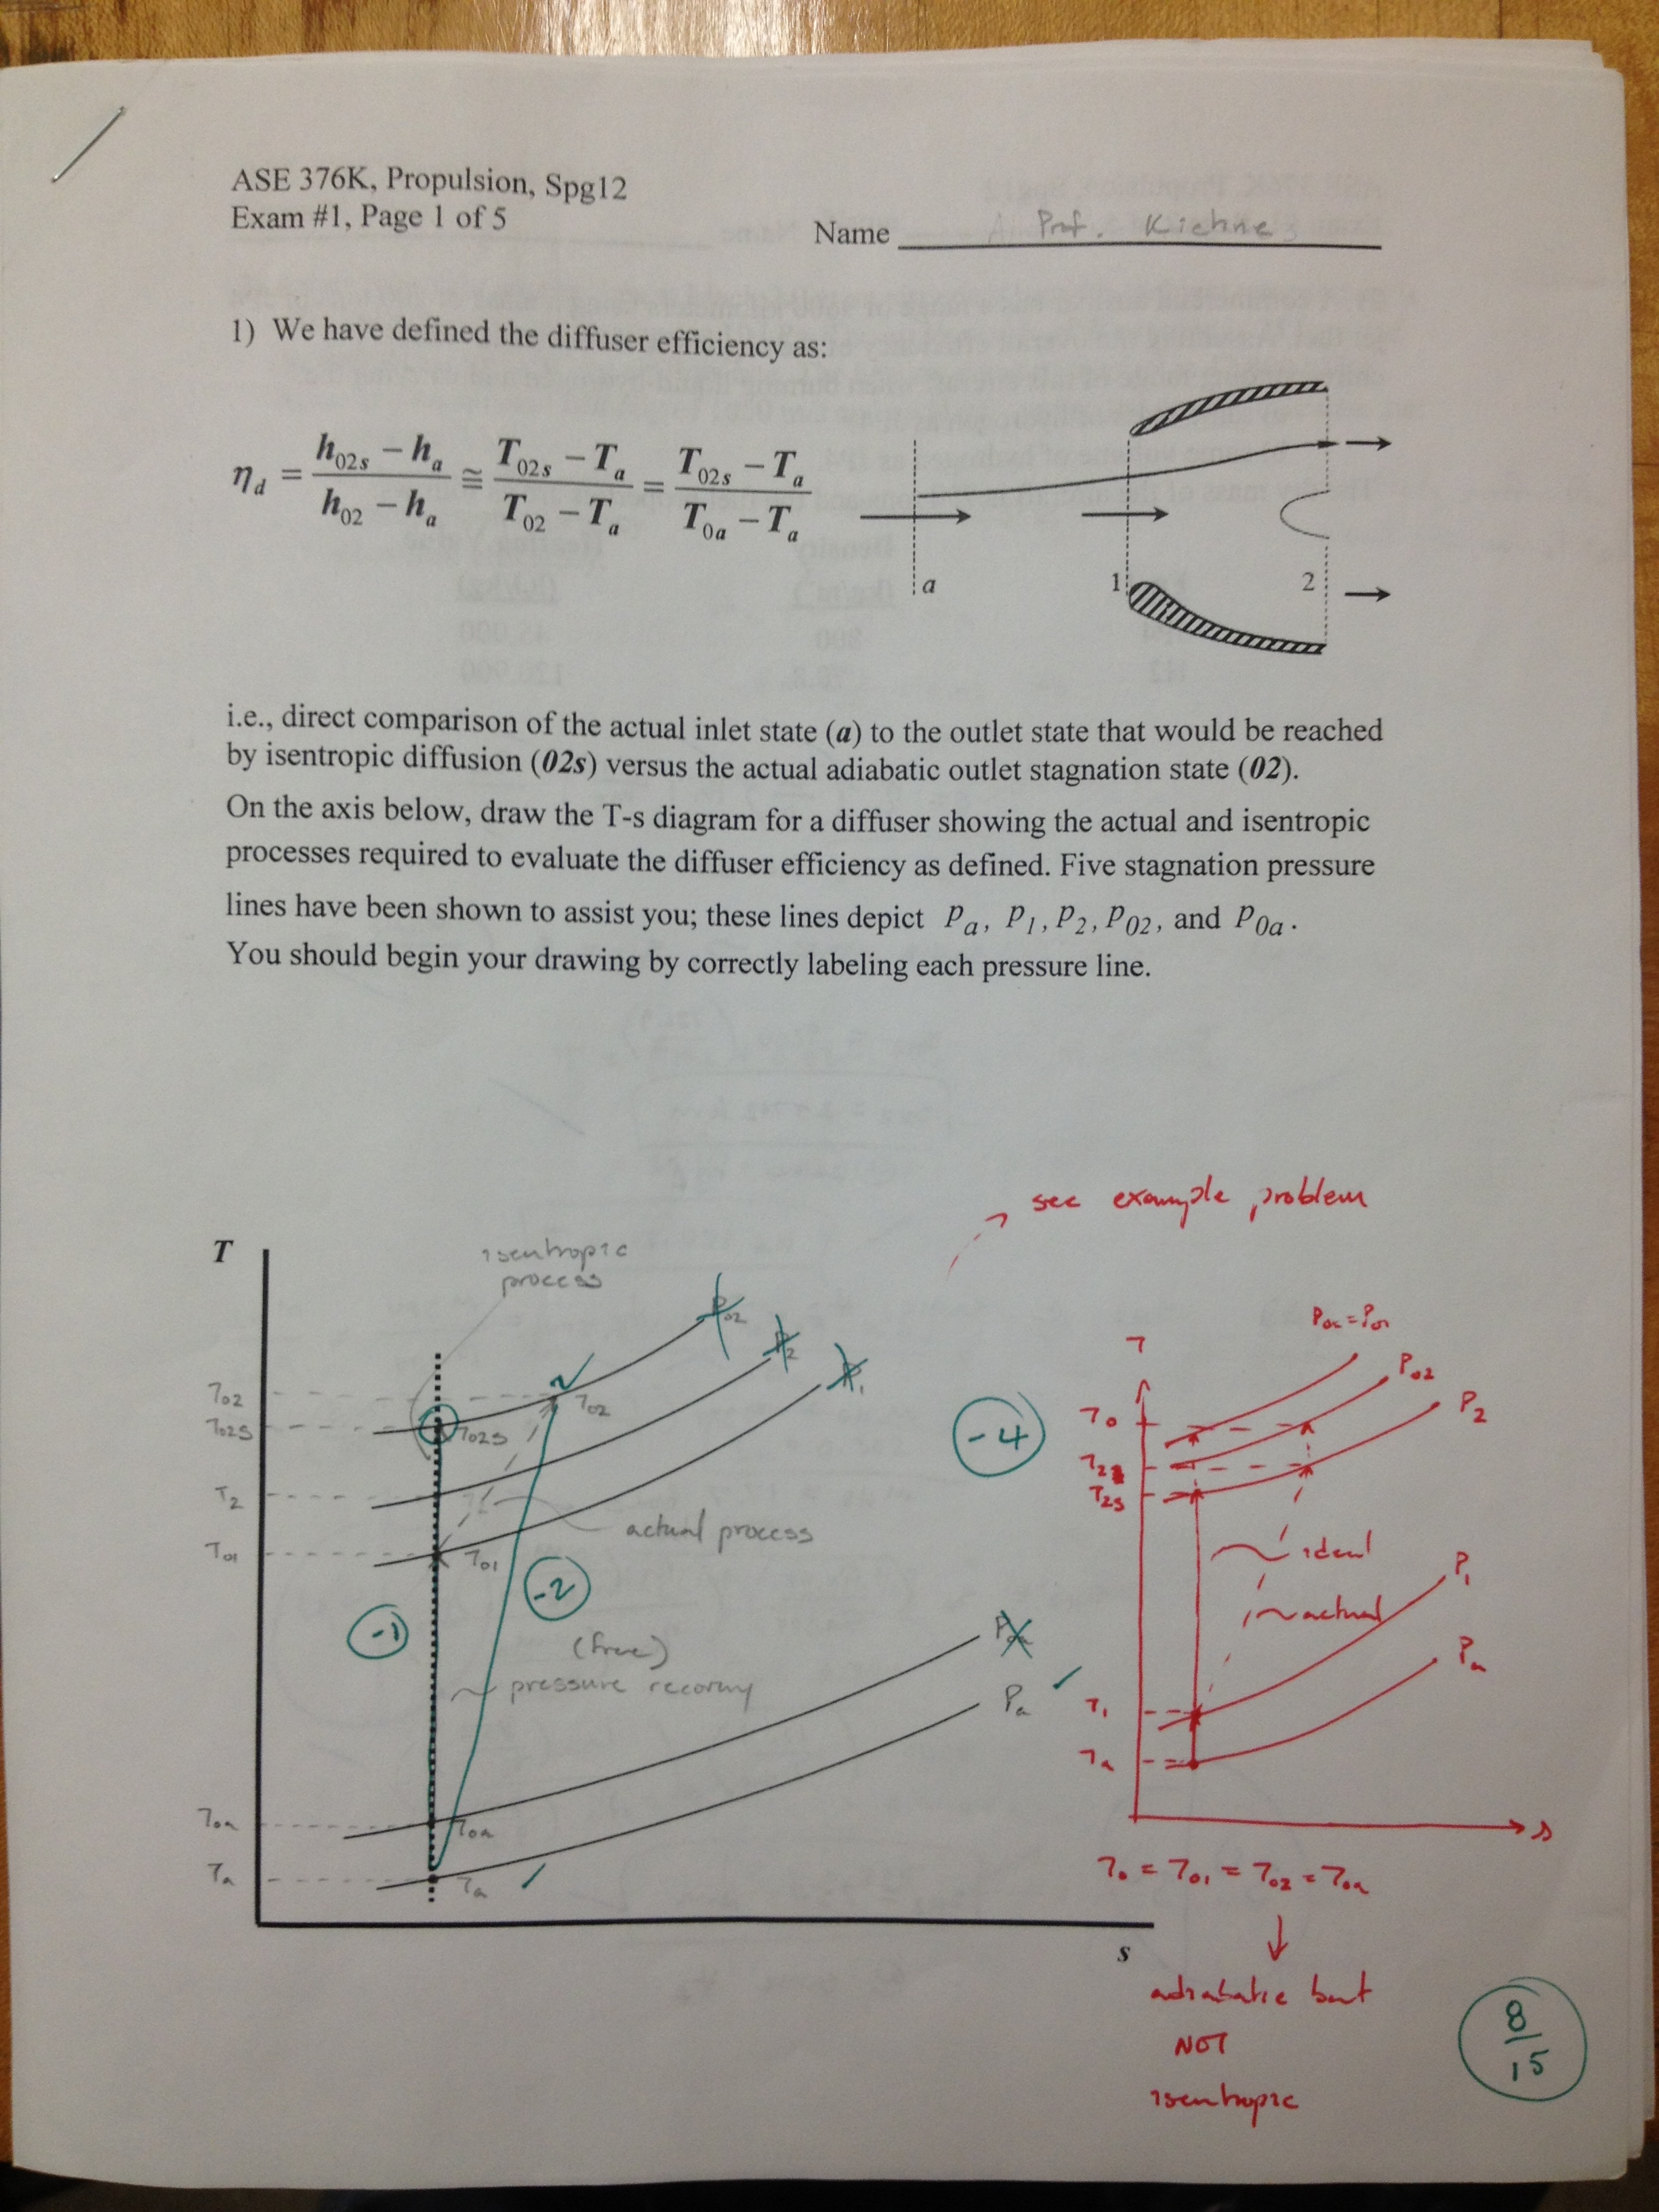 ASE 376K, Propulsion, Spg12
Exam #1, Page 1 of 5
Name Prof. Kiehne
1) We have defined the diffuser efficiency as:
η_d = (h_02s − h_a)/(h_02 − h_a) ≅ (T_02s − T_a)/(T_02 − T_a) = (T_02s − T_a)/(T_0a − T_a)
a
1
2
i.e., direct comparison of the actual inlet state (a) to the outlet state that would be reached
by isentropic diffusion (02s) versus the actual adiabatic outlet stagnation state (02).
On the axis below, draw the T-s diagram for a diffuser showing the actual and isentropic
processes required to evaluate the diffuser efficiency as defined. Five stagnation pressure
lines have been shown to assist you; these lines depict P_a, P_1, P_2, P_02, and P_0a.
You should begin your drawing by correctly labeling each pressure line.
see example problem
T
isentropic
process
P_02
P_2
P_1
T_02
T_02s
T_2
T_01
T_02
T_02s
T_01
actual process
-1
-2
-4
(free)
pressure recovery
P_0a
P_a
T_0a
T_a
T_0a
T_a
s
T
P_0a = P_01
P_02
P_2
T_0
T_2
T_2s
ideal
actual
P_1
P_a
T_1
T_a
s
T_0 = T_01 = T_02 = T_0a
adiabatic but
NOT
isentropic
8/15